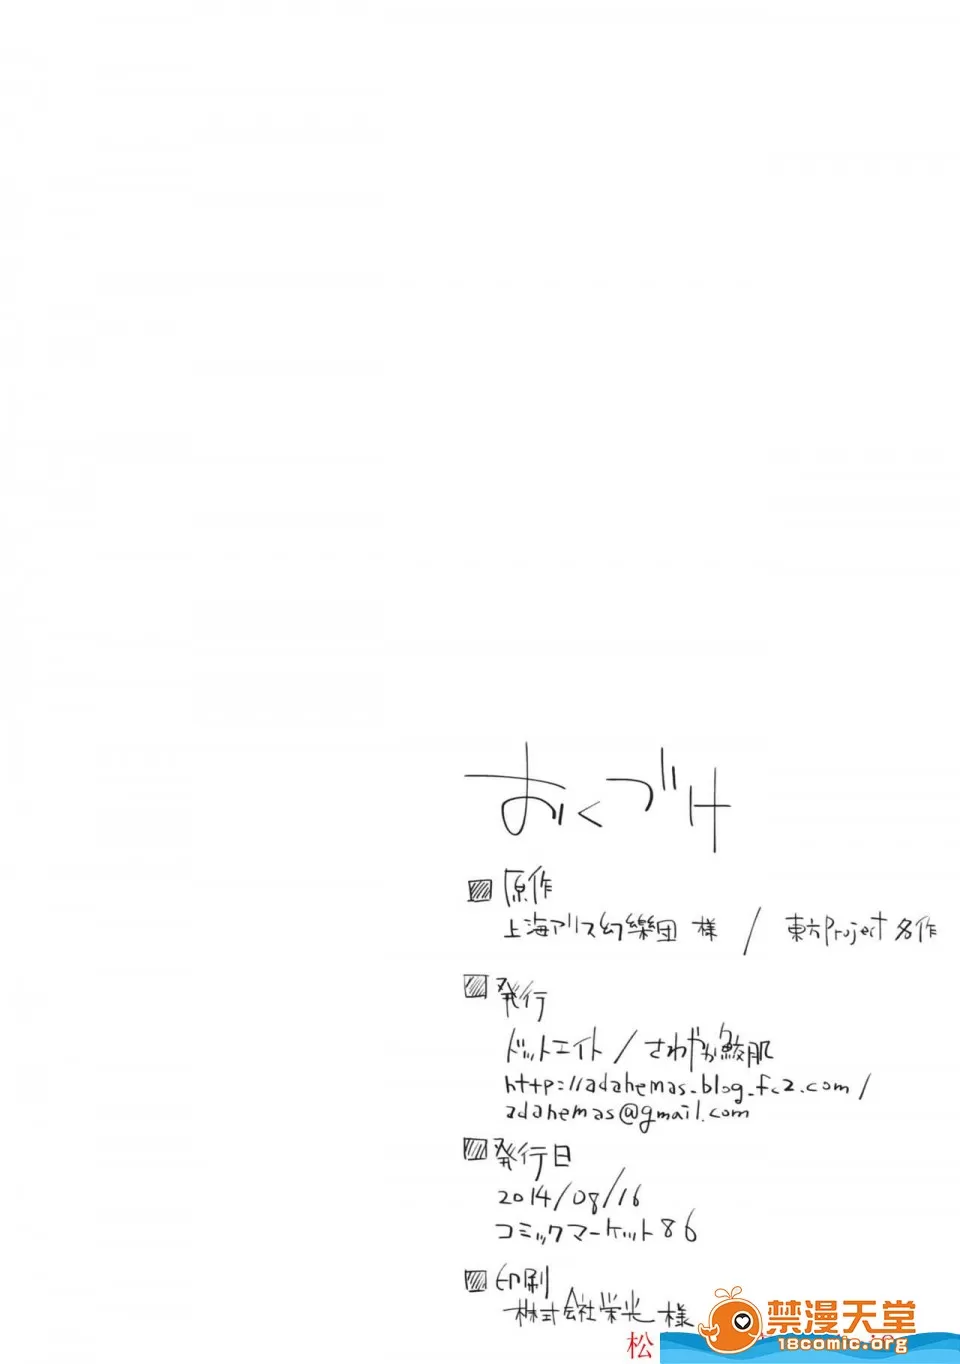 おくづけ
原作
上海アリス幻樂団 様 / 東方Project 各作
発行
ドットエイト / さわやか鮫肌
http://adahemas.blog.fc2.com/
adahemas@gmail.com
発行日
2014/08/16
コミックマーケット86
印刷
株式会社栄光 様
松
禁漫天堂
18comic.org